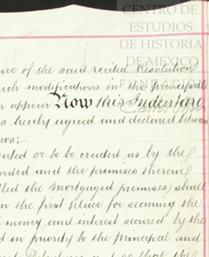 CENTRO DE
ESTUDIOS
DE HISTORIA
DE MEXICO
ave of the said recited Resolution
ch modifications in the Principal
n appear Now this Indenture
s hereby agreed and declared between
ws:
eated or to be created as by the
orded and the premises herein
lled the mortgaged premises) shall
n the first place for securing the
money and interest secured by the
d in priority to the principal and